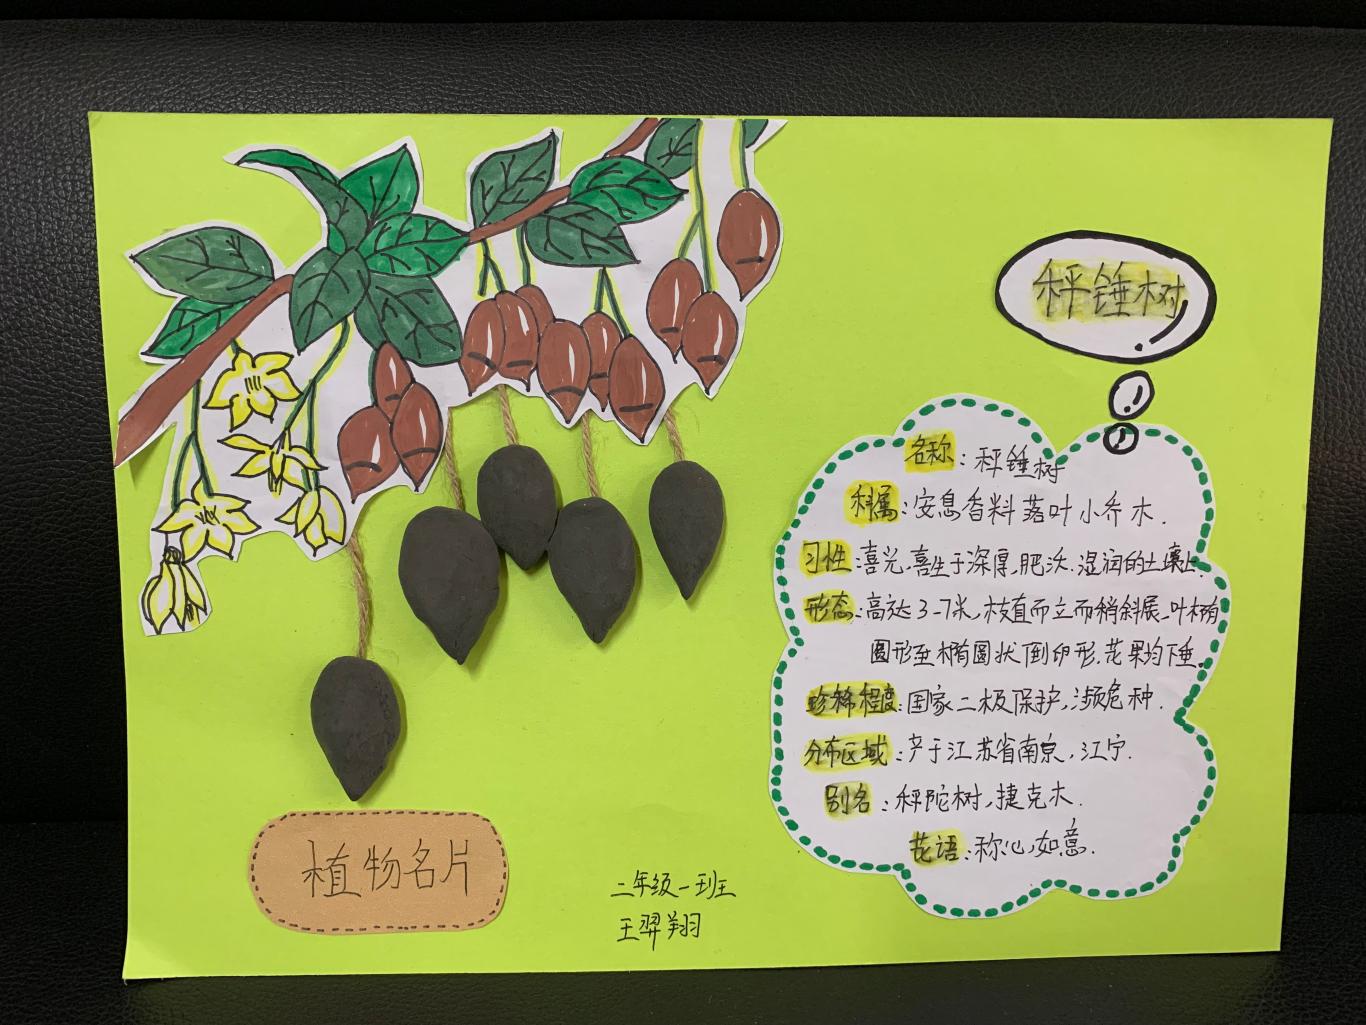 秤锤树
名称：秤锤树
科属：安息香料落叶小乔木.
习性：喜光、喜生于深厚、肥沃、湿润的土壤上.
形态：高达3-7米,枝直而立而稍斜展、叶椭
圆形至椭圆状倒卵形、花果均下垂.
珍稀程度：国家二极保护,濒危种.
分布区域：产于江苏省南京,江宁.
别名：秤陀树,捷克木.
花语：称心如意.
植物名片
二年级一班
王羿翔